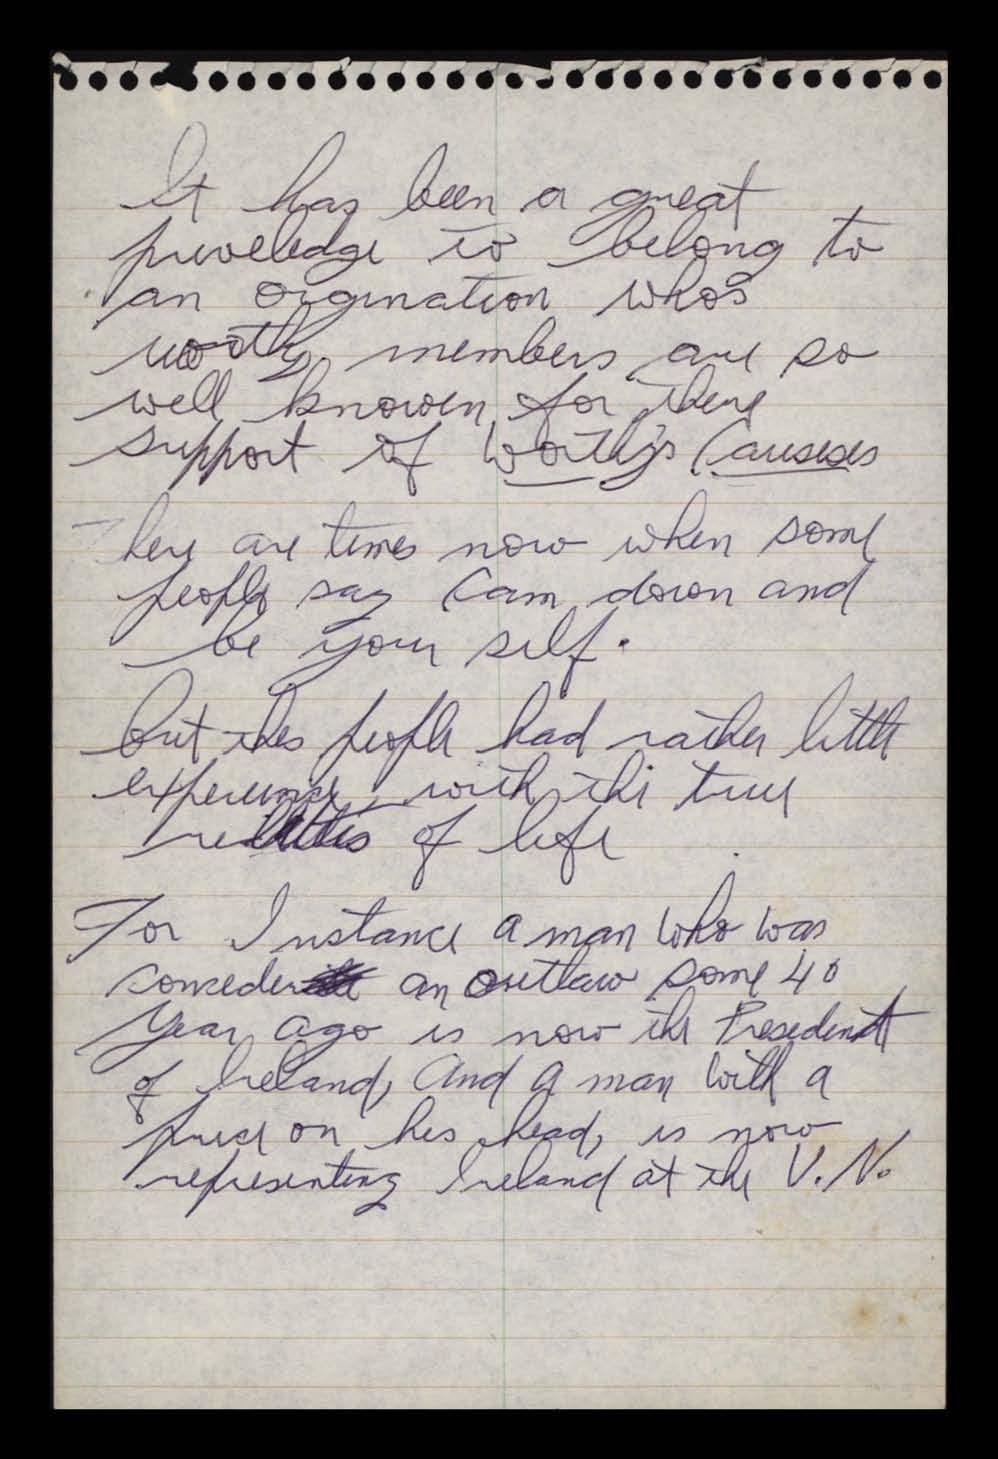 It has been a great
priveledge to belong to
an orgination whos
worthy members are so
well knowen for there
support of Worthys Causeses
There are times now when some
people say Cam down and
be your self.
But thes people had rather little
experience with the true
of life
For Instance a man who was
conseder an outlaw some 40
Year ago is now the Presedent
of Ireland, And a man with a
price on his head, is now
representing Ireland at the U.N.